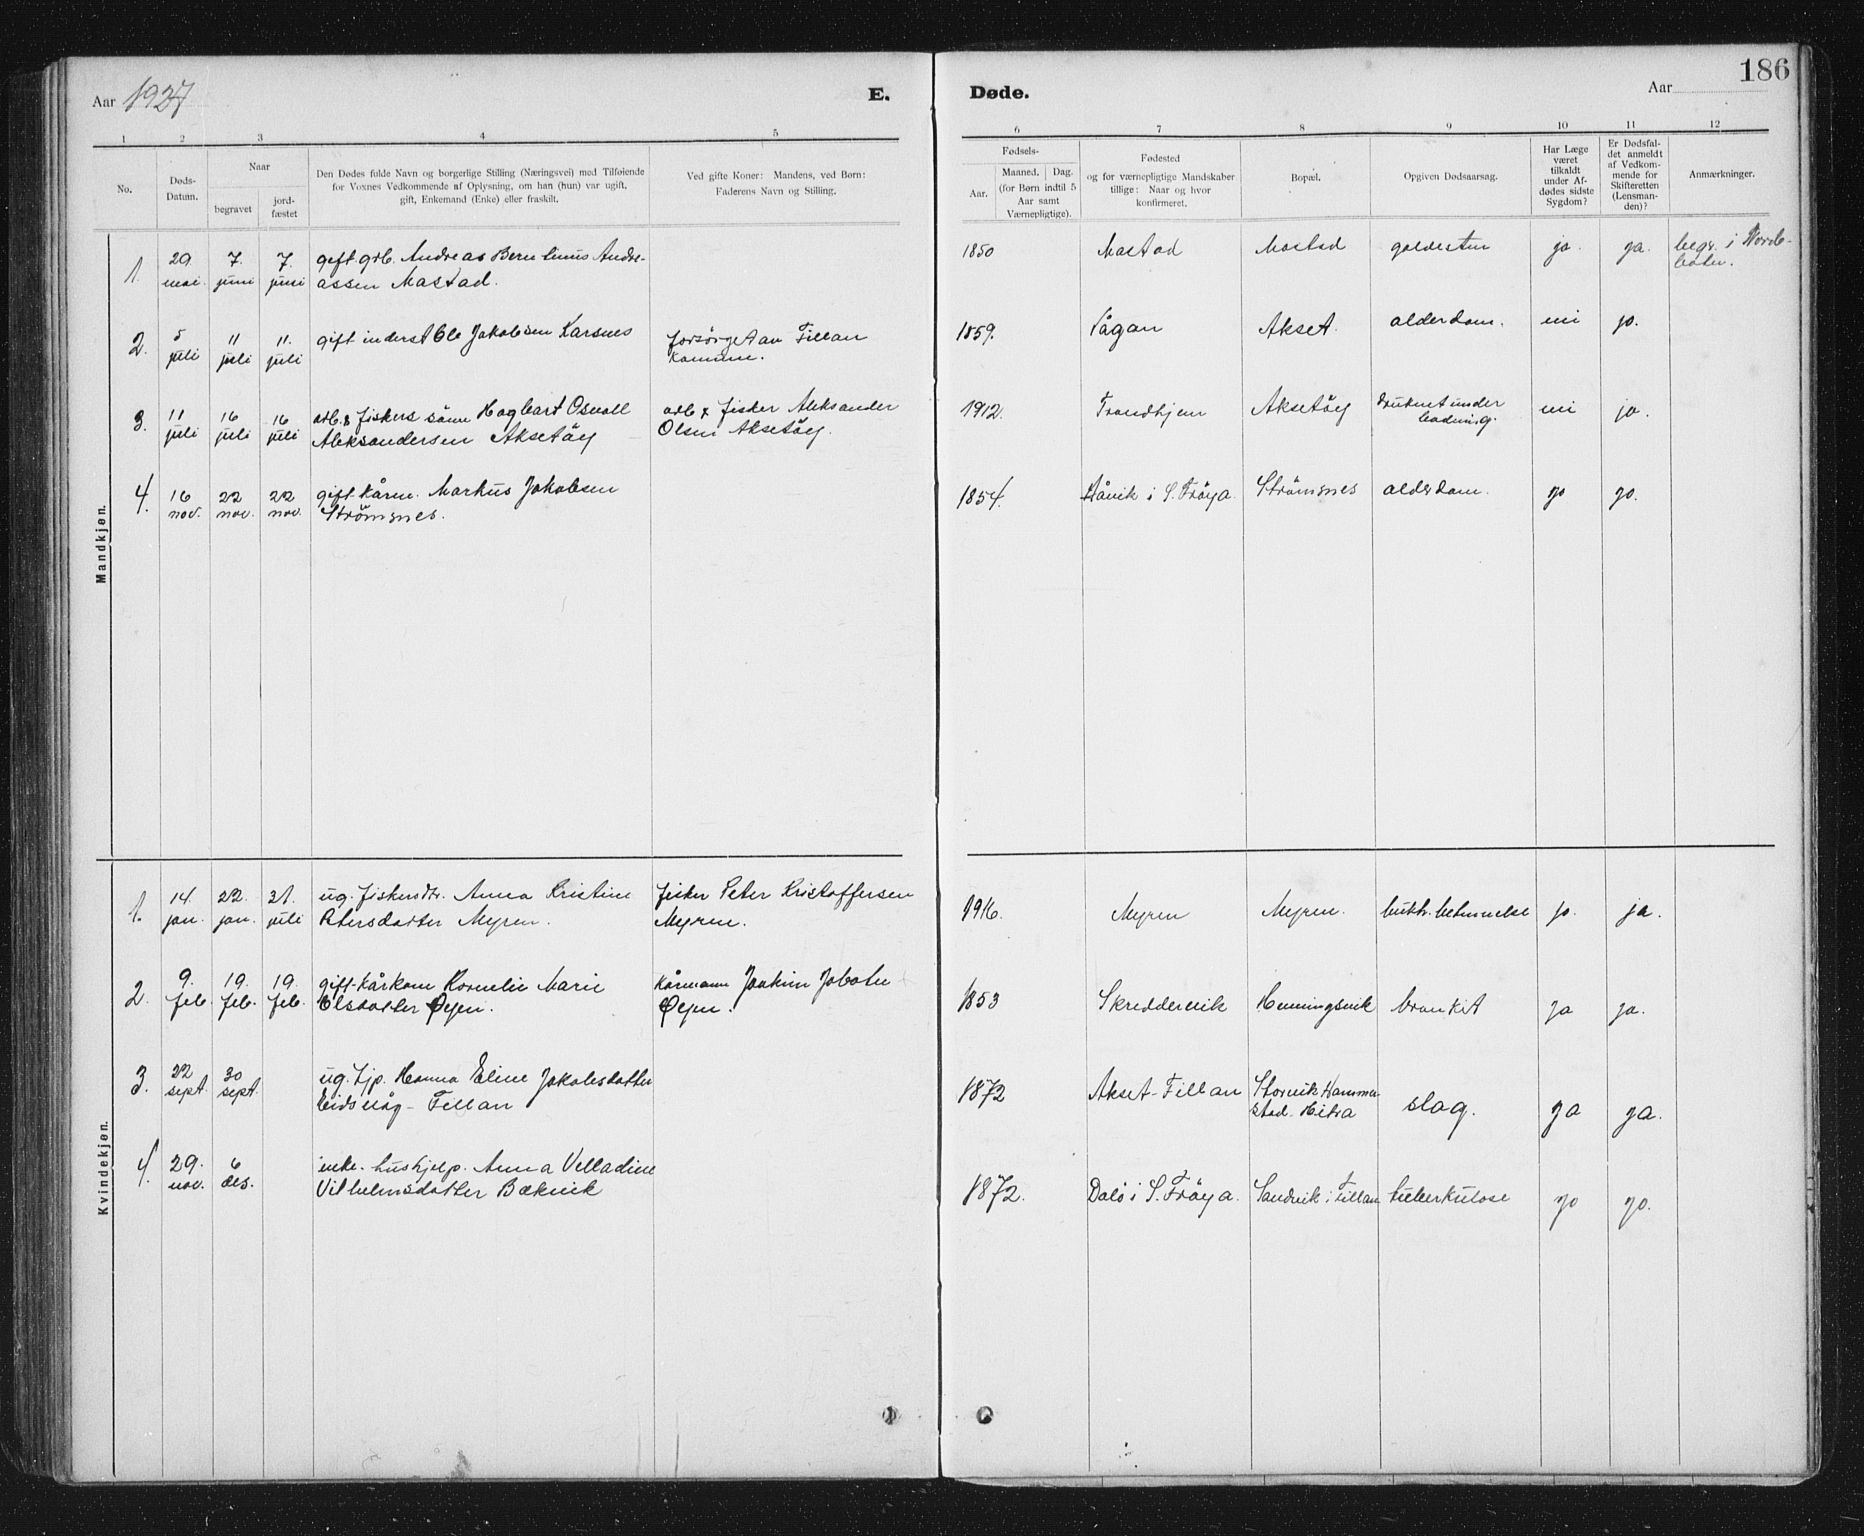 Aar 1927
E.
1 2 3 4 5
No.
Døds-
Datum.
Naar
begravet
jord-
fæstet
Den Dødes fulde Navn og borgerlige Stilling (Næringsvei) med Tilføiende
for Voxnes Vedkommende af Oplysning, om han (hun) var ugift,
gift, Enkemand (Enke) eller fraskilt.
Ved gifte Koner: Mandens, ved Børn:
Faderens Navn og Stilling.
Mandkjøn.
1. 29 mai. 7. juni 7. juni
gift grb. Andreas Berntinus Andre-
assen Mastad.
2. 5 juli 11 juli 11. juli
gift inderst Ole Jakobsen Karsnes
forsørget av Fillan
Kommune.
3. 11 juli 16 juli 16 juli
arb. & fiskers sönn Hagbart Osvall
Aleksandersen Aksetöy
arb & fisker Aleksander
Olsen Aksetöy.
4. 16 nov. 22 nov. 22 nov.
gift kårm. Markus Jakobsen
Strömsnes.
Kvindekjøn.
1. 14. jan. 22. jan. 31. juli
ug. fiskersdtr. Anna Kristine
Petersdatter Myren.
fisker Peter Kristoffersen
Myren.
2. 9. feb. 19. feb. 19. feb.
gift kårkone Kornelie Marie
Olsdatter Øyen.
Kårmann Joakim
Øyen.
3. 22 sept. 30 sept.
ug. hjp. Hanna Eline Jakobsdatter
Eidsvåg - Fillan
4. 29. nov. 6 des.
enke. hushjelp. Anna Velladine
Vilhelmsdatter Bækvik
Døde.
Aar
186
6 7 8 9 10 11 12
Fødsels-
Aar.
Maaned. Dag.
(for Børn indtil 5
Aar samt
Værnepligtige).
Fødested
og for værnepligtige Mandskaber
tillige: Naar og hvor
konfirmeret.
Bopæl.
Opgiven Dødsaarsag.
Har Læge
været
tilkaldt
under Af-
dødes sidste
Sygdom?
Er Dødsfal-
det anmeldt
af Vedkom-
mende for
Skifteretten
(Lensman-
den)?
Anmærkninger.
1850 Mastad Mastad galdesten ja. ja. begr. i
1859. Vågan Akset. alderdom. nei ja.
1912. Trondhjem Aksetöy Druknet under
badning. nei ja.
1854. Håvik i S. Fröya. Strömsnes alderdom. ja ja.
1916. Myren Myren. ja. ja.
1853 Skreddervik Henningsvik bronkit ja ja.
1872 Akset-Fillan Storvik Hammer-
stad. Hitra slag. ja ja.
1872. Dalö i S. Fröya. Sandvik i Fillan tuberkulose ja ja.